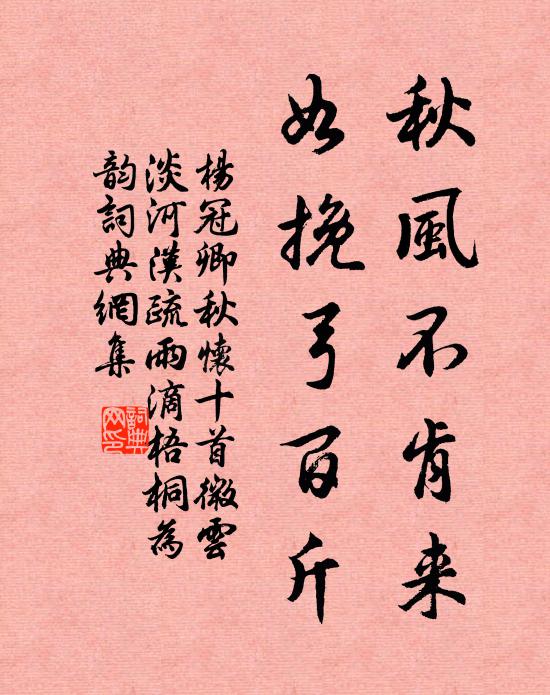 秋風不肯来
如挽弓百斤
楊冠卿秋懷十首微雲
淡河漢疏雨滴梧桐為
韵詞典網集
詞典網印